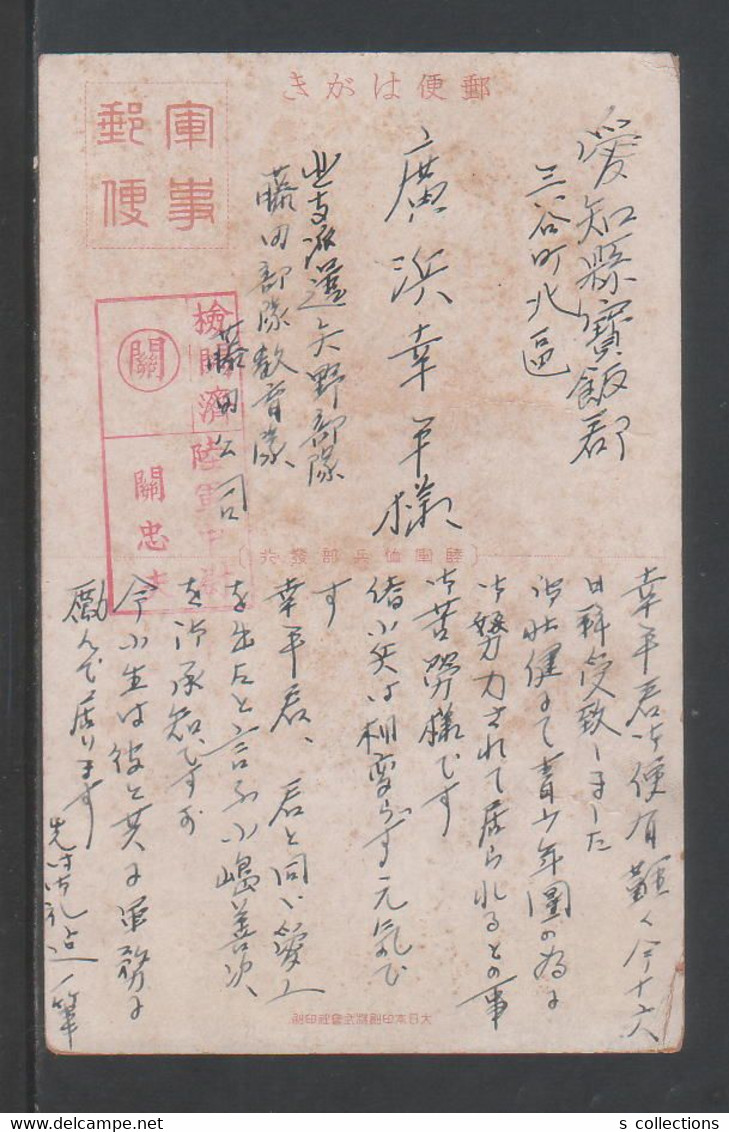 郵便はがき
軍事郵便
愛知縣寶飯郡
三谷町北區
廣浜幸平様
北支派遣矢野部隊
藤田部隊教育隊
檢閲濟
關
關忠
(陸軍恤兵部發行)
幸平君御便有難く今十六
日拝受致しました
御壮健にて青少年團の為に
御努力されて居られるとの事
御苦労様です
小生は相変らず元気で
す
幸平君、君と同じ愛工
を出たと言ふ小嶋善次
を御承知ですか
今小生は彼と共に軍務に
励んで居ります
先は御礼迄一筆
大日本印刷株式會社印刷
s collections